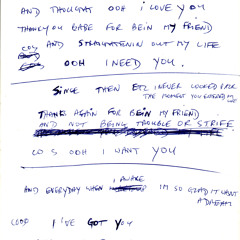 AND THOUGHT OOH I LOVE YOU
THANKYOU BABE FOR BEIN MY FRIEND
COS AND STRAIGHTENIN OUT MY LIFE
OOH I NEED YOU.
SINCE THEN ETC I NEVER LOOKED BACK
THE MOMENT YOU
THANKS AGAIN FOR BEIN MY FRIEND
AND NOT BEING TROUBLE OR STRIFE
COS OOH I WANT YOU
I AWAKE
AND EVERYDAY WHEN IM SO GLAD IT WASNT
A DREAM
COS I'VE GOT YOU